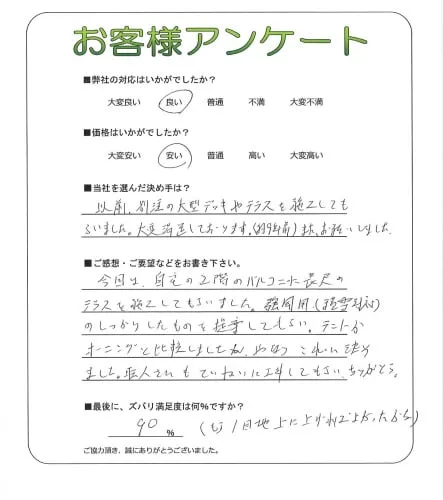 お客様アンケート
■弊社の対応はいかがでしたか？
大変良い 良い 普通 不満 大変不満
■価格はいかがでしたか？
大変安い 安い 普通 高い 大変高い
■当社を選んだ決め手は？
以前、別注の大型デッキやテラスを施工しても
らいました。大変満足しております。(約9年前)また、お願いしました
■ご感想・ご要望などをお書き下さい。
今回は、自宅の2階のバルコニーに長尺の
テラスを施工してもらいました。強風用(積雪対応)
のしっかりしたものを提案してもらい。テントか
オーニングと比較しましたが、やはり これに決め
ました。職人さんも ていねいに工事してもらい、ありがとう。
■最後に、ズバリ満足度は何%ですか？
90 % (もう1段地上に上げればよかったから)
ご協力頂き、誠にありがとうございました。